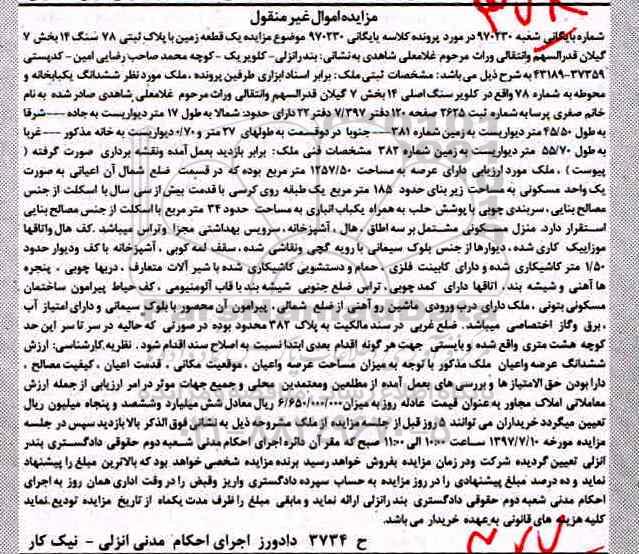 مزایده اموال غیر منقول
شماره بایگانی شعبه ۹۷۰۲۳۰در مورد پرونده کلاسه بایگانی ۹۷۰۲۳۰ موضوع مزایده یک قطعه زمین با پلاک ثبتی ۷۸ سنگ ۱۴ بخش ۷
گیلان قدرالسهم وانتقالی وراث مرحوم غلامعلی شاهدی به نشانی: بندرانزلی- کلویر یک - کوچه محمد صاحب رضایی امین - کدپستی
۳۷۳۵۹-۴۳۱۸۹ به شرح ذیل می باشد: مشخصات ثبتی ملک: برابر اسناد ابزاری طرفین پرونده ، ملک مورد نظر ششدانگ یکبابخانه و
محوطه به شماره ۷۸ واقع در کلویر سنگ اصلی ۱۴ بخش ۷ گیلان قدرالسهم وانتقالی وراث مرحوم غلامعلی شاهدی صادر شده به نام
خانم صغری پرسا به شماره ثبت ۲۶۲۵ صفحه ۱۲۰ دفتر ۷/۳۹۷ دفتر ۲۲ دارای حدود: شمالا به طول ۱۷ متر دیواریست به جاده --- شرقا
به طول ۴۵/۵۰ متر دیواریست به زمین شماره ۳۸۱ --- جنوبا در دوقسمت به طولهای ۲۷ متر و ۰/۷۰ دیواریست به خانه مذکور --- غربا
به طول ۵۵/۷۰ متر دیواریست به زمین شماره ۳۸۲ مشخصات فنی ملک: برابر بازدید بعمل آمده ونقشه برداری صورت گرفته (
پیوست ) ، ملک مورد ارزیابی دارای عرصه به مساحت ۱۲۵۷/۵۰ متر مربع بوده که در قسمت ضلع شمال آن اعیانی به صورت
یک واحد مسکونی به مساحت زیر بنای حدود ۱۸۵ متر مربع یک طبقه روی کرسی با قدمت بیش از سی سال با اسکلت از جنس
مصالح بنایی ، سربندی چوبی با پوشش حلب به همراه یکباب انباری به مساحت حدود ۳۴ متر مربع با اسکلت از جنس مصالح بنایی
استقرار دارد. منزل مسکونی مشتمل بر سه اطاق ، هال ، آشپزخانه ، سرویس بهداشتی مجزا وتراس میباشد .کف هال واتاقها
موزاییک کاری شده ، دیوارها از جنس بلوک سیمانی با رویه گچی ونقاشی شده ، سقف لمه کوبی ، آشپزخانه با کف ودیوار حدود
۱/۵۰ متر کاشیکاری شده و دارای کابینت فلزی ، حمام و دستشویی کاشیکاری شده با شیر آلات متعارف ، دربها چوبی ، پنجره
ها آهنی و شیشه بند ، اتاقها دارای کمد چوبی ، تراس ضلع جنوبی شیشه بند با قاب آلومنیومی ، کف حیاط پیرامون ساختمان
مسکونی بتونی ، ملک دارای درب ورودی ماشین رو آهنی از ضلع شمالی ، پیرامون آن محصور با بلوک سیمانی و دارای امتیاز آب
، برق وگاز اختصاصی میباشد. ضلع غربی در سند مالکیت به پلاک ۳۸۲ محدود بوده در صورتی که حالیه در سر تا سر این حد
کوچه هشت متری واقع شده و بایستی جهت هر گونه اقدام بعدی ابتدا نسبت به اصلاح سند اقدام شود . نظریه کارشناسی: ارزش
ششدانگ عرصه واعیان ملک مذکور با توجه به میزان مساحت عرصه واعیان ، موقعیت مکانی ، قدمت اعیان ، کیفیت مصالح ،
دارا بودن حق الامتیاز ها و بررسی های بعمل آمده از مطلعین ومعتمدین محلی و جمیع جهات موثر در امر ارزیابی از جمله ارزش
معاملاتی املاک مجاور به عنوان قیمت عادله روز به میزان ۶/۶۵۰/۰۰۰/۰۰۰ ریال معادل شش میلیارد وششصد و پنجاه میلیون ریال
تعیین میگردد خریداران می توانند ۵ روز قبل از جلسه مزایده از ملک مشروحه ذیل به نشانی فوق الذکر بالا بازدید سپس در جلسه
مزایده مورخه ۱۳۹۷/۷/۱۰ ساعت ۱۰:۰۰ الی ۱۱:۰۰ صبح که مقر آن دائره اجرای احکام مدنی شعبه دوم حقوقی دادگستری بندر
انزلی تعیین گردیده شرکت ودر زمان مزایده بفروش خواهد رسید برنده مزایده شخصی خواهد بود که بالاترین مبلغ را پیشنهاد
نماید و ده درصد مبلغ پیشنهادی را در روز مزایده به حساب سپرده دادگستری واریز وقبض را در وقت اداری همان روز به اجرای
احکام مدنی شعبه دوم حقوقی دادگستری بندر انزلی ارائه نماید و مابقی مبلغ را ظرف مدت یکماه از تاریخ مزایده تودیع.نماید
کلیه هزینه های قانونی به عهده خریدار می باشد.
ح ۳۷۳۴ دادورز اجرای احکام مدنی انزلی - نیک کار